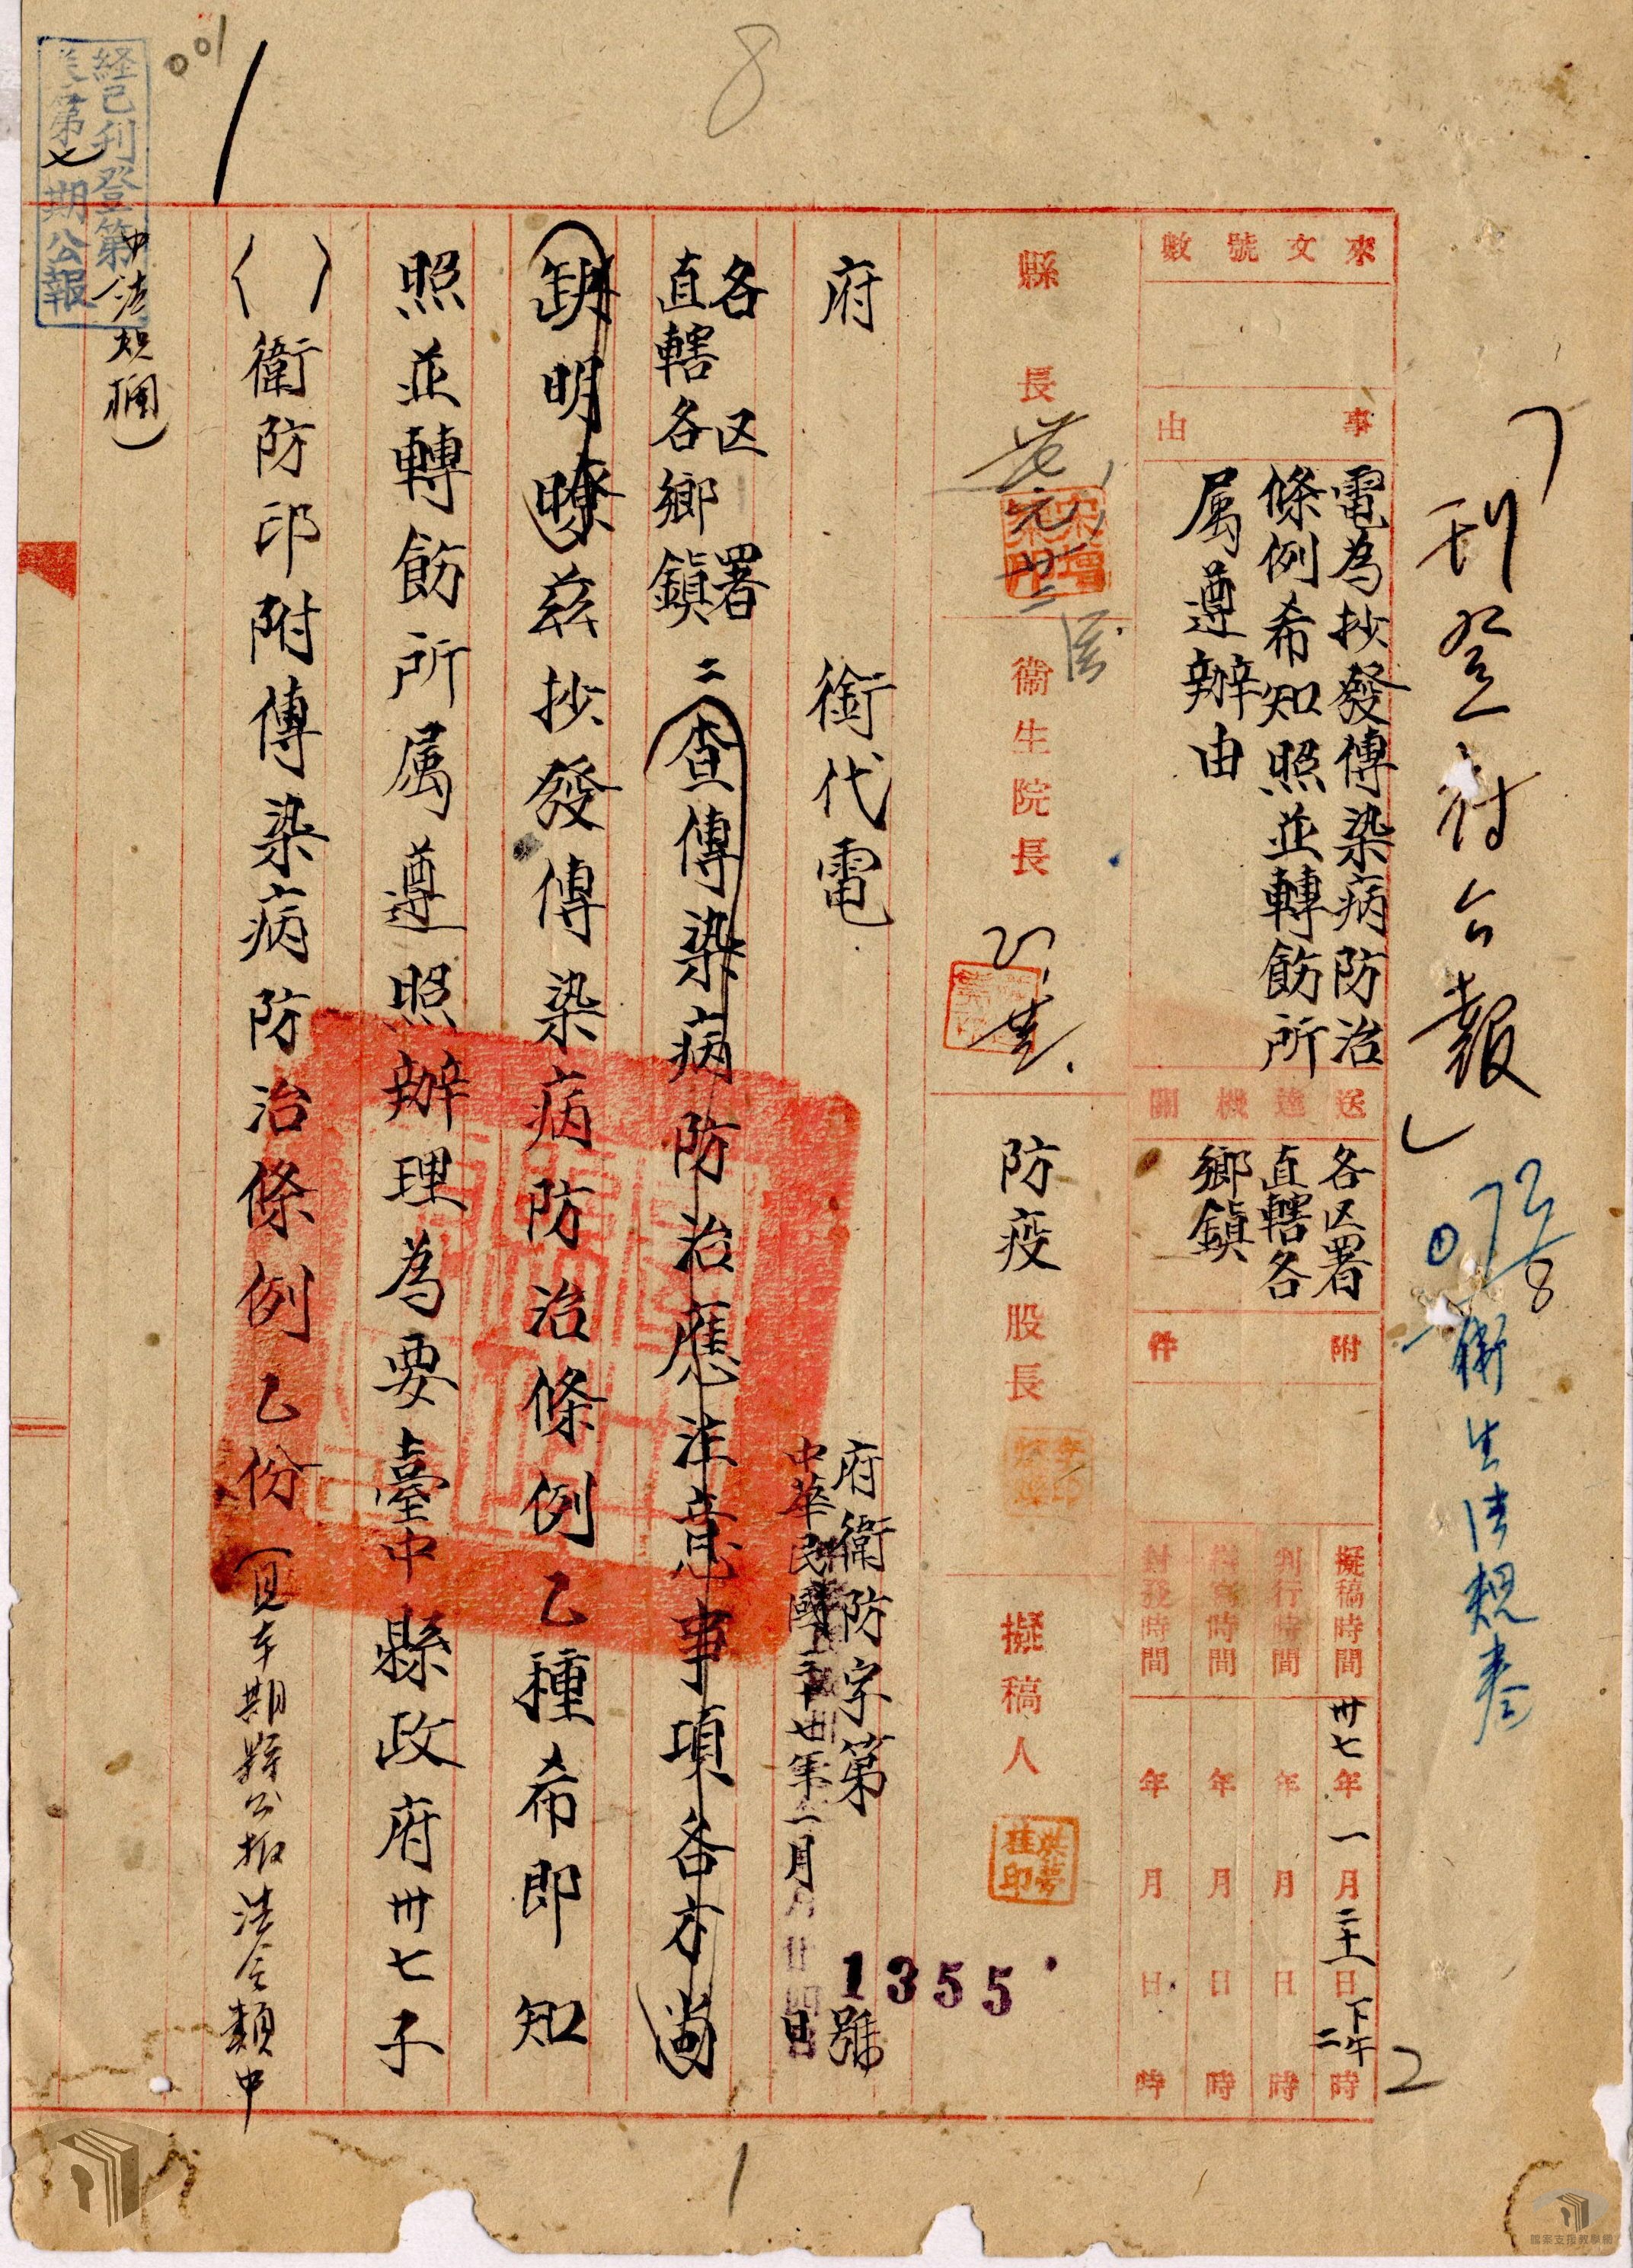 刊登府公報
衛生法規卷
來文號數
事由
電為抄發傳染病防治
條例希知照並轉飭所
属遵辦由
送達機關
各区署
直轄各
鄉鎮
附件
擬稿時間 卅七年一月二十一日下午二時
判行時間 年月日時
繕寫時間 年月日時
封發時間 年月日時
縣長
衛生院長
防疫股長
擬稿人
府銜代電
府衛防字第1355號
中華民國卅七年一月廿四日
各区署
直轄各鄉鎮
查傳染病防治應注意事項各方尚
缺明瞭茲抄發傳染病防治條例乙種希即知
照並轉飭所属遵照辦理為要臺中縣政府卅七子
( )衛防印附傳染病防治條例乙份(見本期縣公報法令類中
中法規欄)
経已刊登第
美第七期公報
001
8
1
2